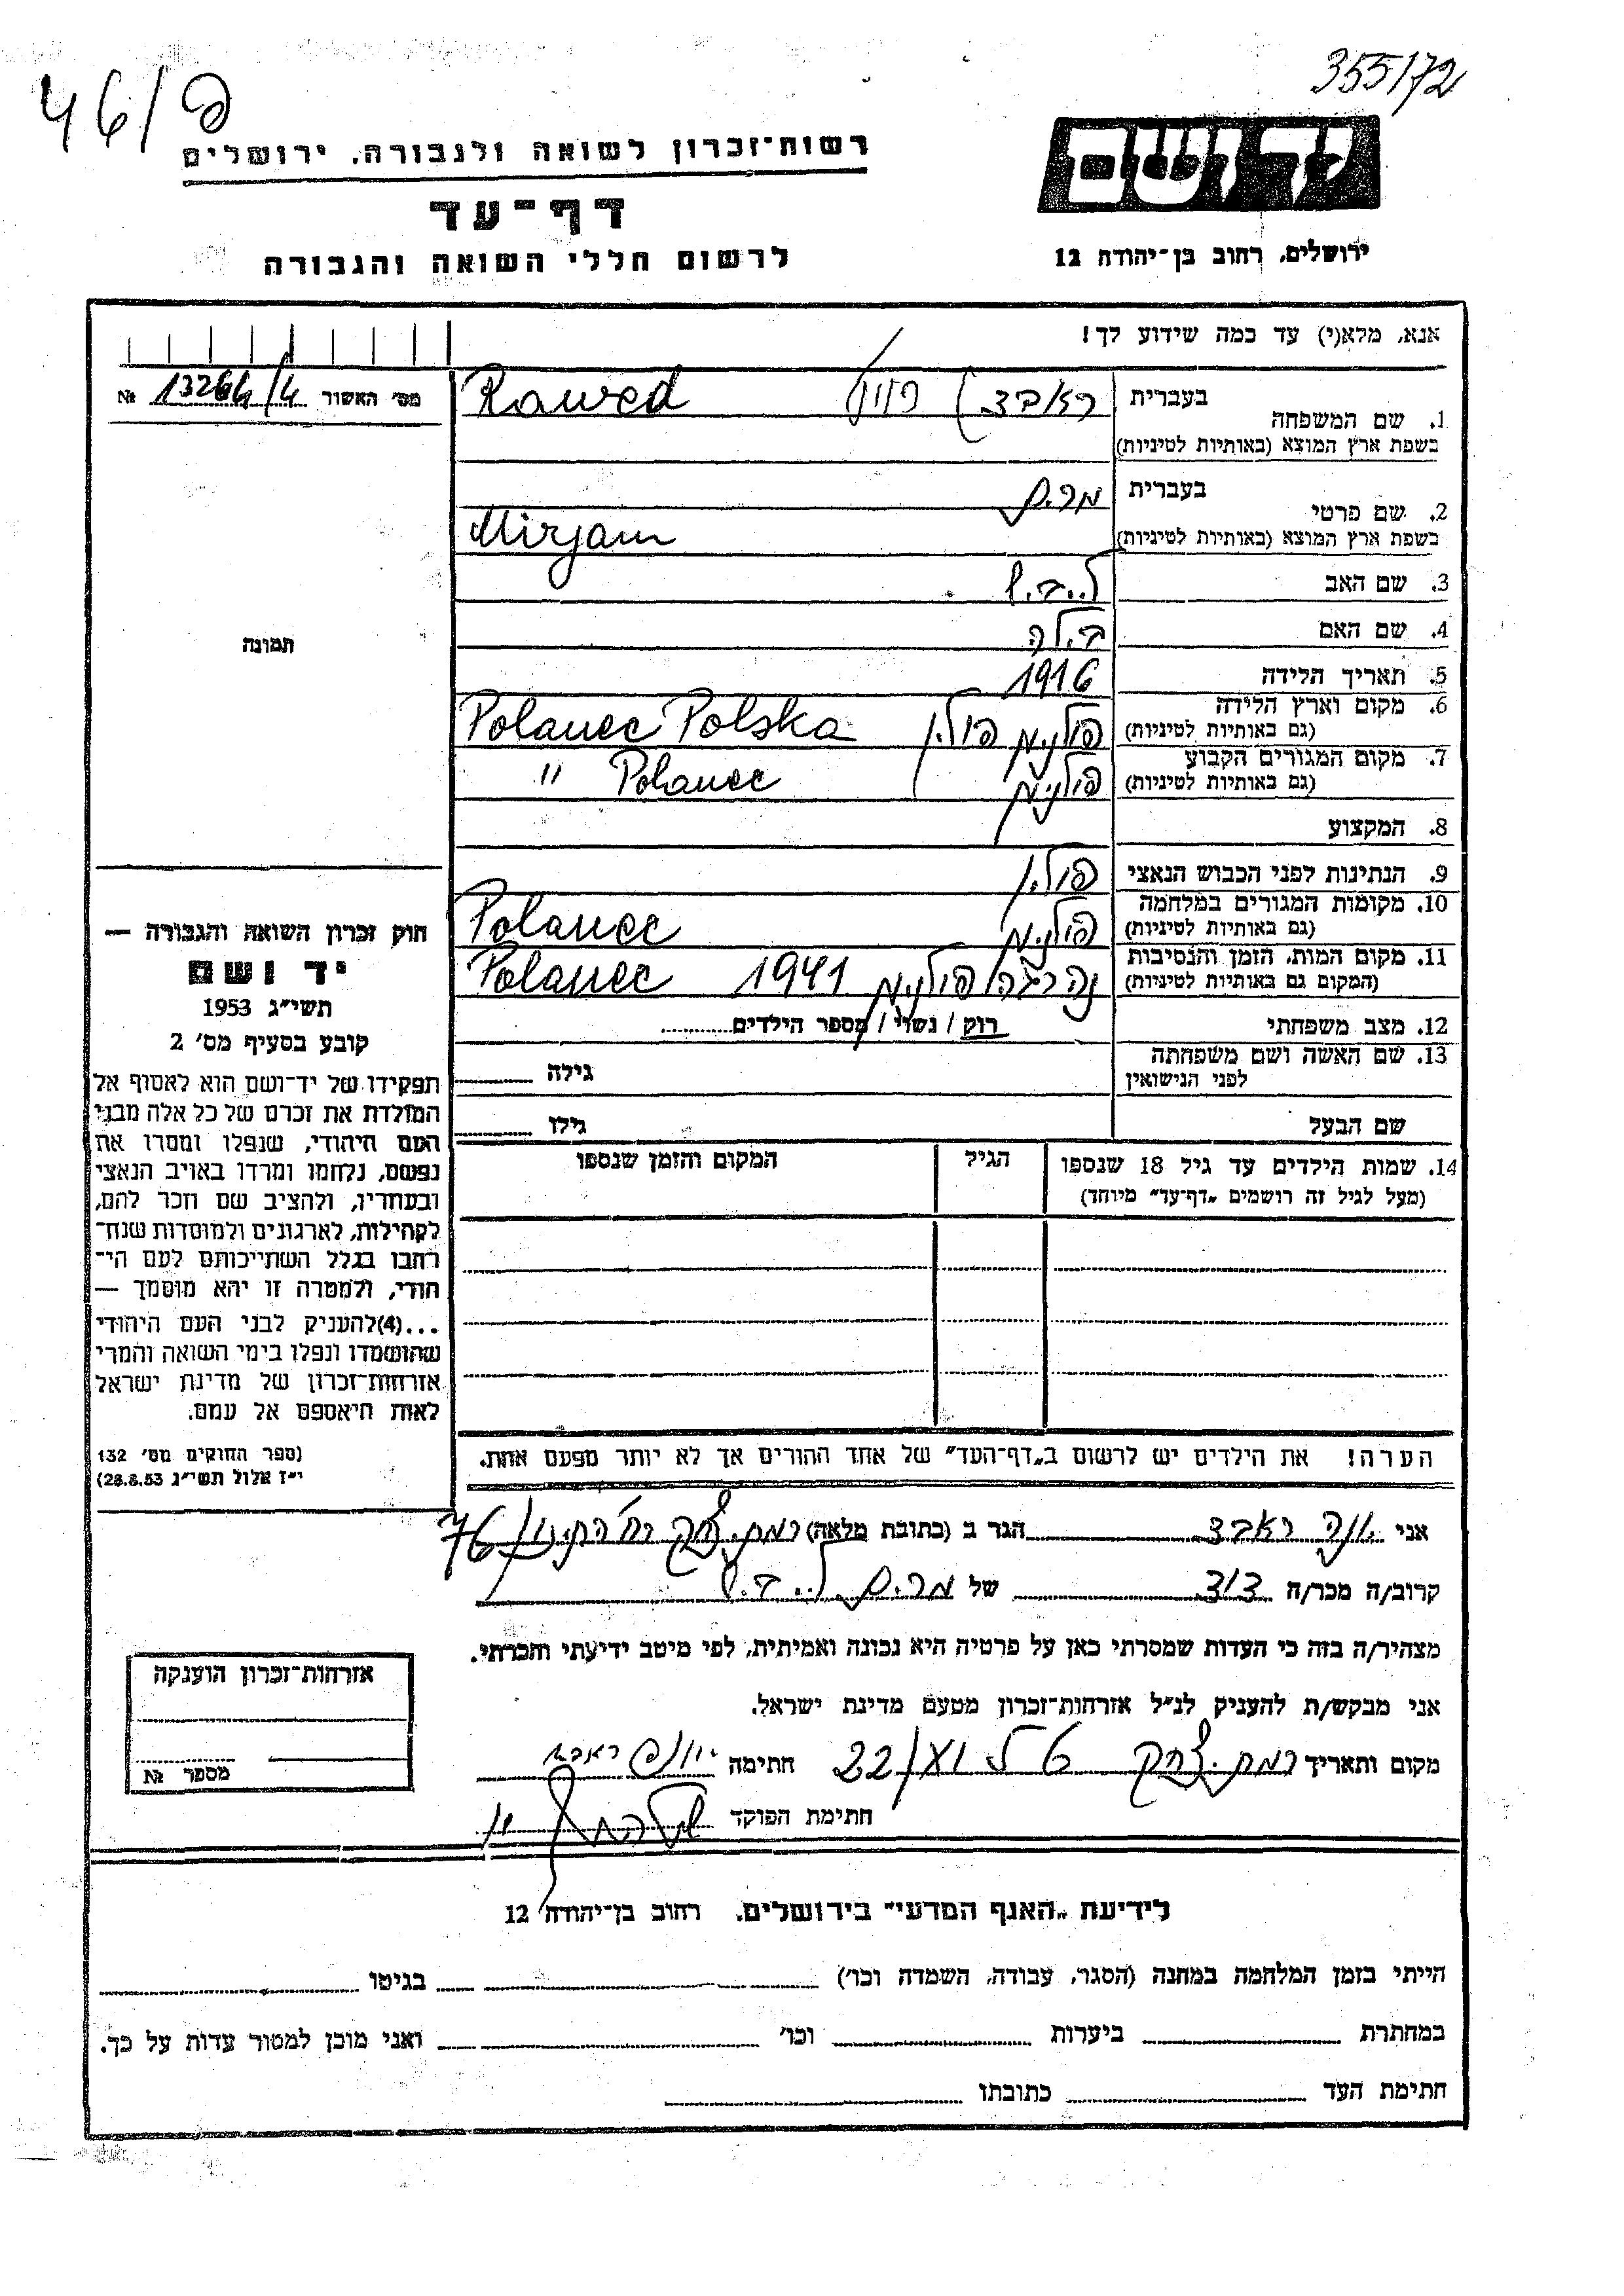 355172
46/פ
יד ושם
רשות־זכרון לשואה ולגבורה, ירושלים
דף־עד
לרשום חללי השואה והגבורה
ירושלים, רחוב בן־יהודה 12
אנא, מלא(י) עד כמה שידוע לך!
מס' האשור 13264/4 №
תמונה
1. שם המשפחה
בעברית ראבד
בשפת ארץ המוצא (באותיות לטיניות) Rawed
2. שם פרטי
בעברית מרים
בשפת ארץ המוצא (באותיות לטיניות) Mirjam
3. שם האב
4. שם האם בילה
5. תאריך הלידה 1916
6. מקום וארץ הלידה
(גם באותיות לטיניות) פולנים פולין Polanec Polska
7. מקום המגורים הקבוע
(גם באותיות לטיניות) פולנים Polanec "
8. המקצוע
9. הנתינות לפני הכבוש הנאצי פולין
10. מקומות המגורים במלחמה
(גם באותיות לטיניות) פולנים Polanec
11. מקום המות, הזמן והנסיבות
(המקום גם באותיות לטיניות) נהרגה פולנים 1941 Polanec
12. מצב משפחתי רוק / נשוי / מספר הילדים
13. שם האשה ושם משפחתה
לפני הנישואין גילה
שם הבעל גילו
14. שמות הילדים עד גיל 18 שנספו
(מעל לגיל זה רושמים „דף־עד" מיוחד)
הגיל
המקום והזמן שנספו
הערה! את הילדים יש לרשום ב„דף־העד" של אחד ההורים אך לא יותר מפעם אחת.
חוק זכרון השואה והגבורה —
יד ושם
תשי״ג 1953
קובע בסעיף מס׳ 2
תפקידו של יד־ושם הוא לאסוף אל
המולדת את זכרם של כל אלה מבני
העם היהודי, שנפלו ומסרו את
נפשם, נלחמו ומרדו באויב הנאצי
ובעוזריו, ולהציב שם וזכר להם,
לקהילות, לארגונים ולמוסדות שנח־
רבו בגלל השתייכותם לעם הי־
הודי, ולמטרה זו יהא מוסמך —
...(4)להעניק לבני העם היהודי
שהושמדו ונפלו בימי השואה והמרי
אזרחות־זכרון של מדינת ישראל
לאות היאספם אל עמם.
(ספר החוקים מס׳ 132
י״ז אלול תשי״ג 28.8.53)
אני יונה ראבד הגר ב (כתובת מלאה) רמת יצחק 76
קרוב/ה מכר/ה דוד של מרים
מצהיר/ה בזה כי העדות שמסרתי כאן על פרטיה היא נכונה ואמיתית, לפי מיטב ידיעתי והכרתי.
אני מבקש/ת להעניק לנ״ל אזרחות־זכרון מטעם מדינת ישראל.
מקום ותאריך רמת יצחק חתימה
חתימת הפוקד
אזרחות־זכרון הוענקה
מספר №
לידיעת „האגף המדעי" בירושלים, רחוב בן־יהודה 12
הייתי בזמן המלחמה במחנה (הסגר, עבודה, השמדה וכו׳) בגיטו
במחתרת ביערות וכו׳ ואני מוכן למסור עדות על כך.
חתימת העד כתובתו